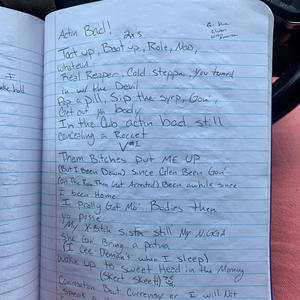 Actin Bad! 2x's
Toot up, Boot up, Role, Nod,
whateva
Real Reaper, Cold steppa, You tuned
in w/ the Devil
Pop a pill, Sip the syrp, Goin',
Out my body
In the Club actin bad still
concealing a Rocket
V#1
Them Bitches put ME UP
(But I Been Down) Since Glen Been Goin'
Been awhile since
I been Home
I prolly Got Mo' Bodies then
yo posse
My X-Bitch sista still My NIGGA
She Gon' Bring a patna
(I see Demon's when I sleep)
Wake up to sweet Head in the Morning
(skeet skeet)
Conversation But Currency or I will Not
Speak